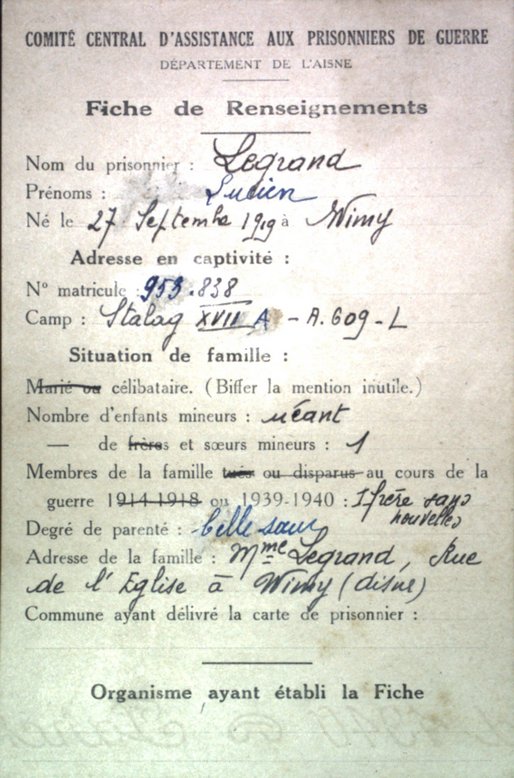 COMITÉ CENTRAL D'ASSISTANCE AUX PRISONNIERS DE GUERRE
DÉPARTEMENT DE L'AISNE
Fiche de Renseignements
Nom du prisonnier : Legrand
Prénoms : Lucien
Né le 27 Septembre 1919 à Wimy
Adresse en captivité :
N° matricule : 953.838
Camp : Stalag XVII A - A. 609 - L
Situation de famille :
Marié ou célibataire. (Biffer la mention inutile.)
Nombre d'enfants mineurs : néant
— de frères et sœurs mineurs : 1
Membres de la famille tués ou disparus au cours de la
guerre 1914-1918 ou 1939-1940 : 1 frère sans
nouvelles
Degré de parenté : belle sœur
Adresse de la famille : Mme Legrand, Rue
de l'Eglise à Wimy (Aisne)
Commune ayant délivré la carte de prisonnier :
Organisme ayant établi la Fiche